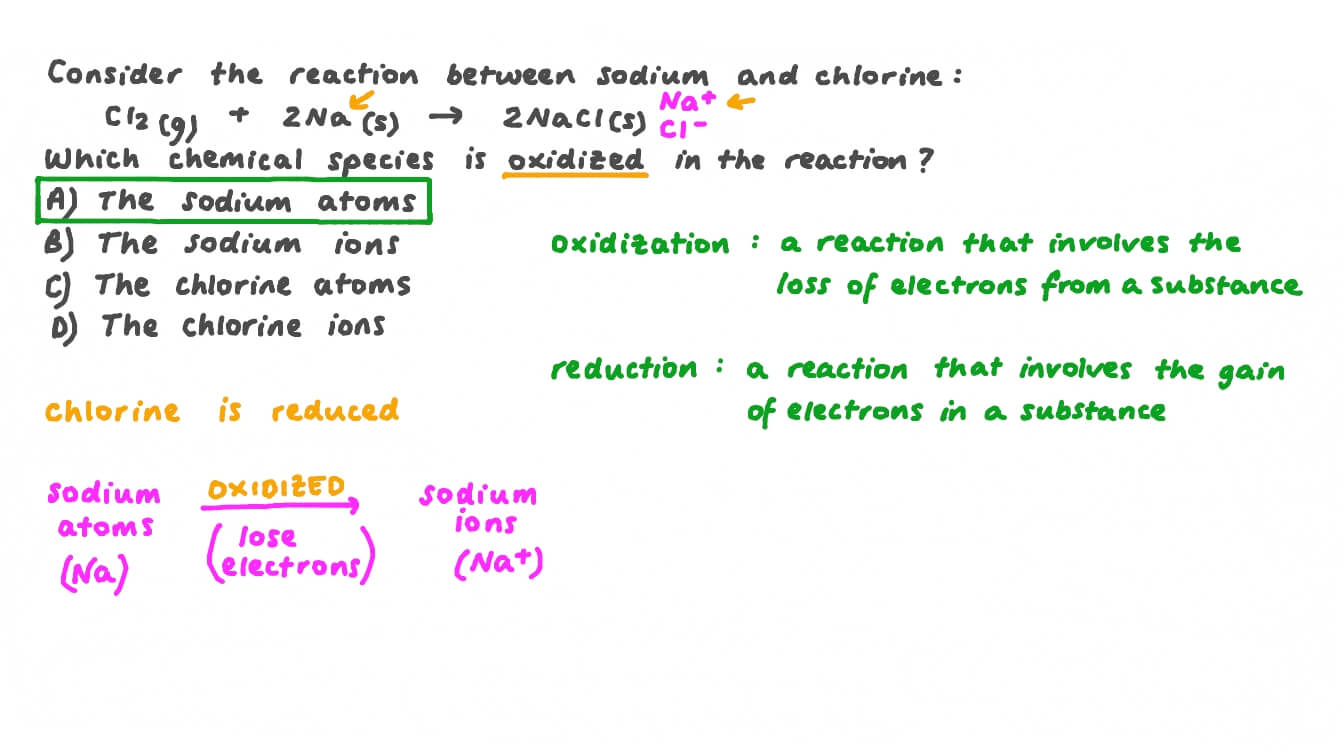 Consider the reaction between sodium and chlorine :
Cl2 (g) + 2Na (s) → 2NaCl(s) Na+ Cl-
Which chemical species is oxidized in the reaction ?
A) The sodium atoms
B) The sodium ions
C) The chlorine atoms
D) The chlorine ions
oxidization : a reaction that involves the
loss of electrons from a substance
reduction : a reaction that involves the gain
of electrons in a substance
chlorine is reduced
sodium atoms (Na)
OXIDIZED
(lose electrons)
sodium ions (Na+)